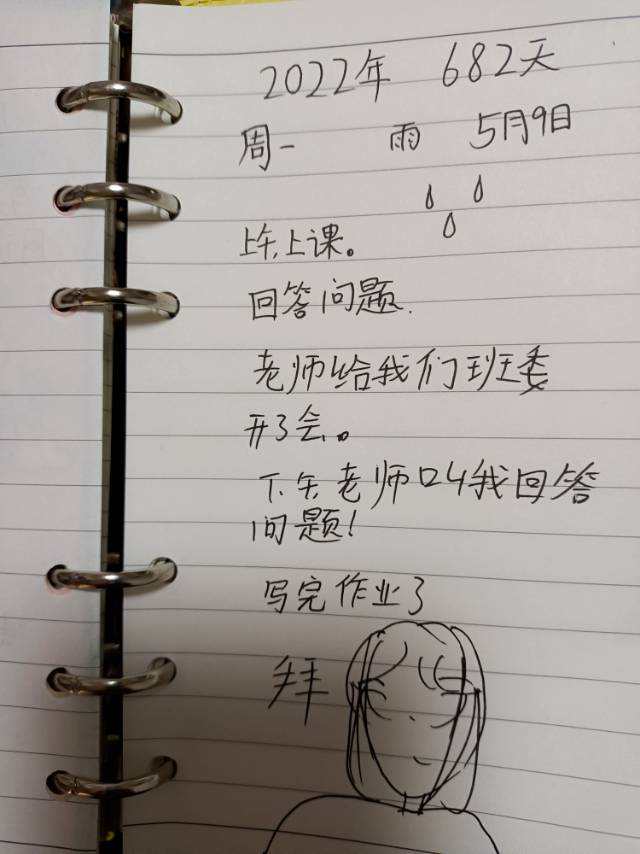 2022年 682天
周一 雨 5月9日
上午上课。
回答问题.
老师给我们班委
开了会。
下午老师叫我回答
问题!
写完作业了
拜